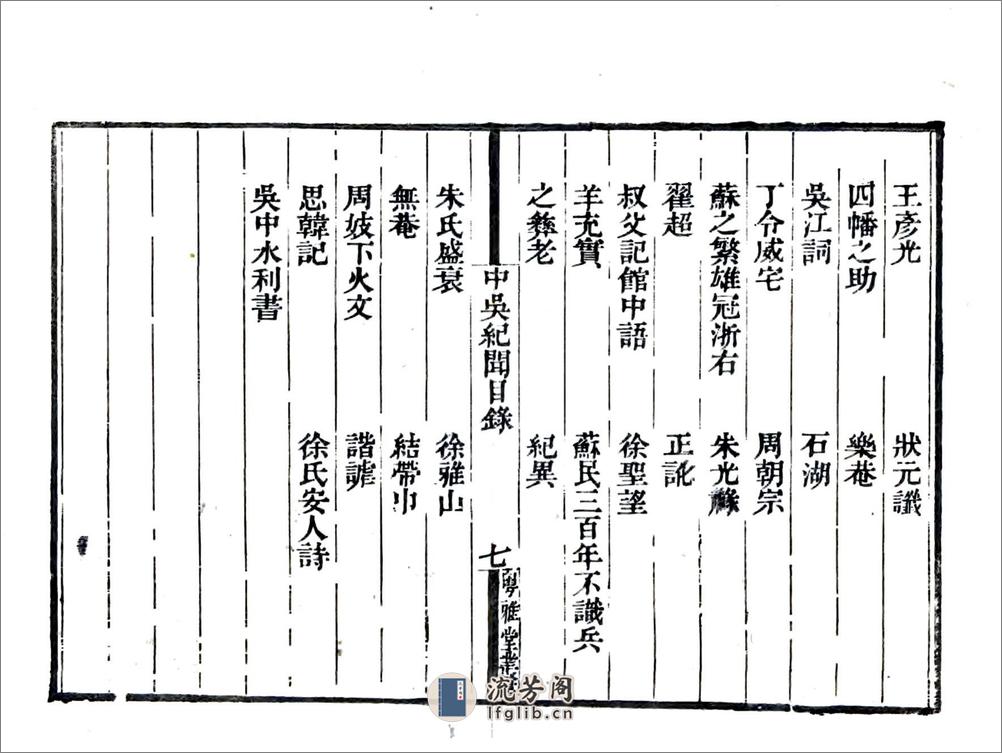 王彥光　狀元讖
四幡之助　樂菴
吳江詞　石湖
丁令威宅　周朝宗
蘇之繁雄冠浙右　朱光祿
翟超　正訛
叔父記館中語　徐聖望
羊充實　蘇民三百年不識兵
之彝老　紀異
中吳紀聞目錄　七　粵雅堂叢書
朱氏盛衰　徐稚山
無菴　結帶巾
周妓下火文　諧謔
思韓記　徐氏安人詩
吳中水利書
流芳阁
lfglib.cn